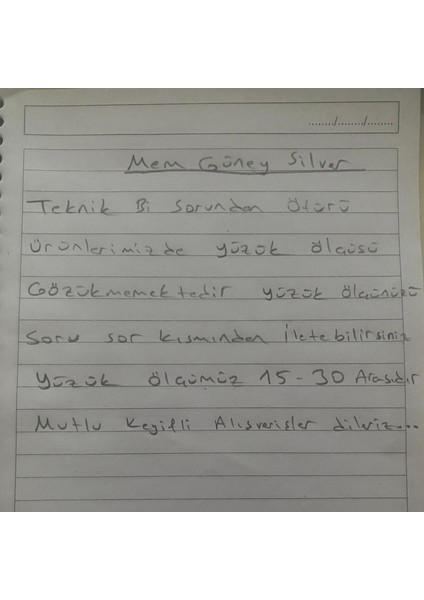 ......./......./.......
Mem Güney Silver
Teknik Bi sorundan Ötürü
Ürünlerimizde yüzük ölçüsü
Gözükmemektedir yüzük ölçünüzü
Soru sor kısmından İletebilirsiniz
Yüzük ölçümüz 15-30 Arasıdır
Mutlu Keyifli Alışverişler dileriz...